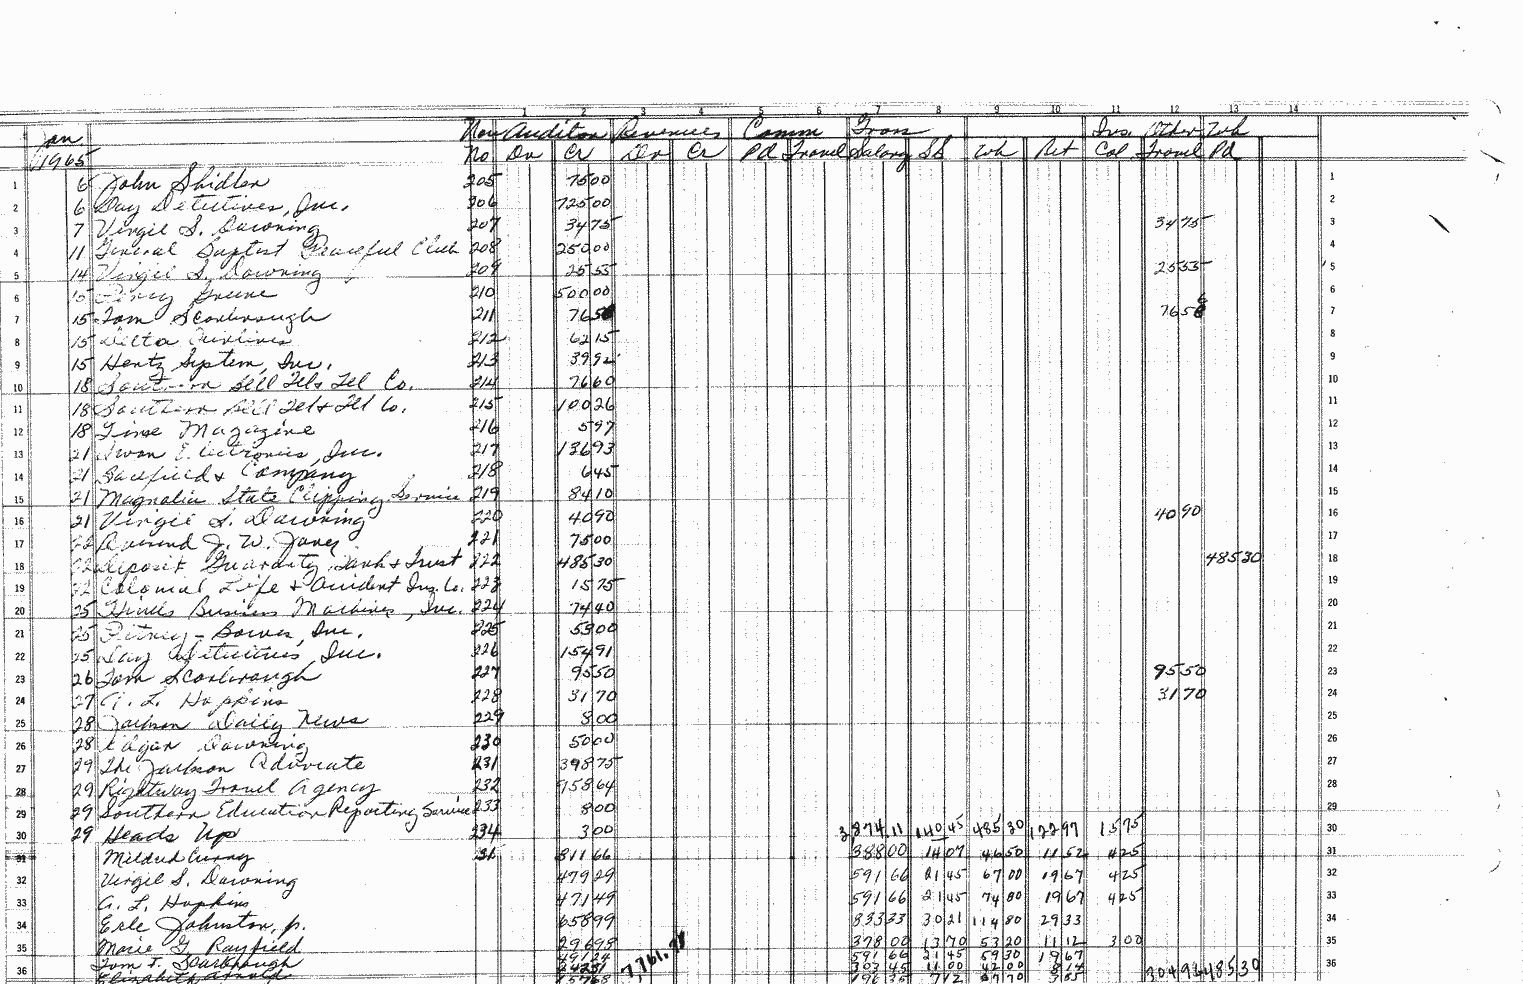 1 2 3 4 5 6 7 8 9 10 11 12 13 14
Jan Nov Auditor Revenues Comm Trans Ins. Other Wh
1965 No Dr Cr Dr Cr Pd Travel Salary SS Wh Ret Col Travel Pd
1 6 John Shidler 205 7500 1
2 6 Day Detectives, Inc. 206 72500 2
3 7 Virgil S. Downing 207 3475 3475 3
4 11 General Baptist Peaceful Club 208 25000 4
5 14 Virgil S. Downing 209 2555 2555 5
6 15 Percy Greene 210 50000 6
7 15 Tom Scarbrough 211 7656 7656 7
8 15 Delta Airlines 212 6215 8
9 15 Hertz System, Inc. 213 3992 9
10 18 Southern Bell Tel & Tel Co. 214 7660 10
11 18 Southern Bell Tel & Tel Co. 215 10026 11
12 18 Time Magazine 216 597 12
13 21 Electronics, Inc. 217 13693 13
14 21 & Company 218 645 14
15 21 Magnolia State Clipping Service 219 8410 15
16 21 Virgil S. Downing 220 4090 4090 16
17 22 Reverend J. W. Jones 221 7500 17
18 22 Deposit Guaranty Bank & Trust 222 48530 48530 18
19 22 Colonial Life & Accident Ins. Co. 223 1575 19
20 25 Business Machines, Inc. 224 7440 20
21 25 Pitney-Bowes, Inc. 225 5300 21
22 25 Day Detectives Inc. 226 15491 22
23 26 Tom Scarbrough 227 9550 9550 23
24 27 A. L. Hopkins 228 3170 3170 24
25 28 Jackson Daily News 229 800 25
26 28 Edgar Downing 230 5000 26
27 29 The Jackson Advocate 231 39875 27
28 29 Rightway Travel Agency 232 95864 28
29 29 Southern Education Reporting Service 233 800 29
30 29 Heads Up 234 300 3,874.11 140.45 485.30 122.97 15.75 30
31 Mildred Curry 31 81166 38800 1407 4650 1152 425 31
32 Virgil S. Downing 47929 59166 2145 6700 1967 425 32
33 A. L. Hopkins 47149 59166 2145 7480 1967 425 33
34 Erle Johnston, Jr. 65899 83333 3021 11480 2933 34
35 Marie G. Rayfield 29698 37800 1370 5320 1112 300 35
Tom T. Scarbrough 49124 59166 2145 5930 1967
36 Elizabeth Arnold 7,761.98 30345 1100 4200 30494 48530 36